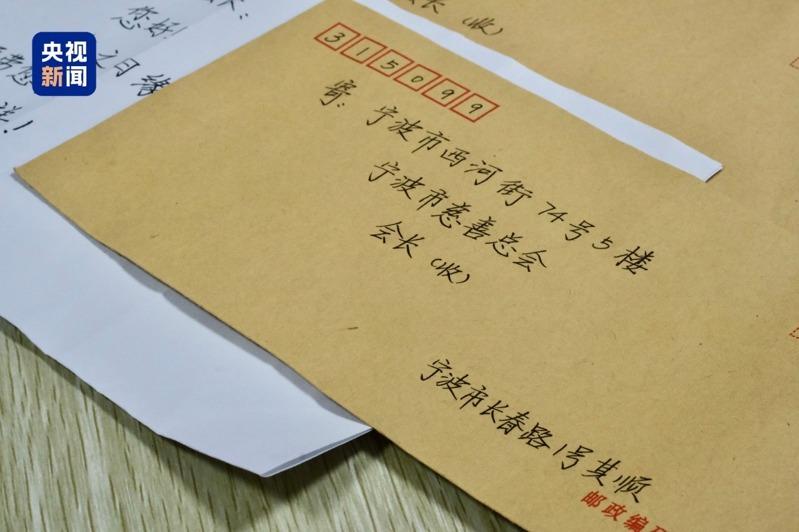 央视
新闻
您好!
会长(收)
315099
寄:宁波市西河街74号5楼
宁波市慈善总会
会长(收)
宁波市长春路1号其顺
邮政编码